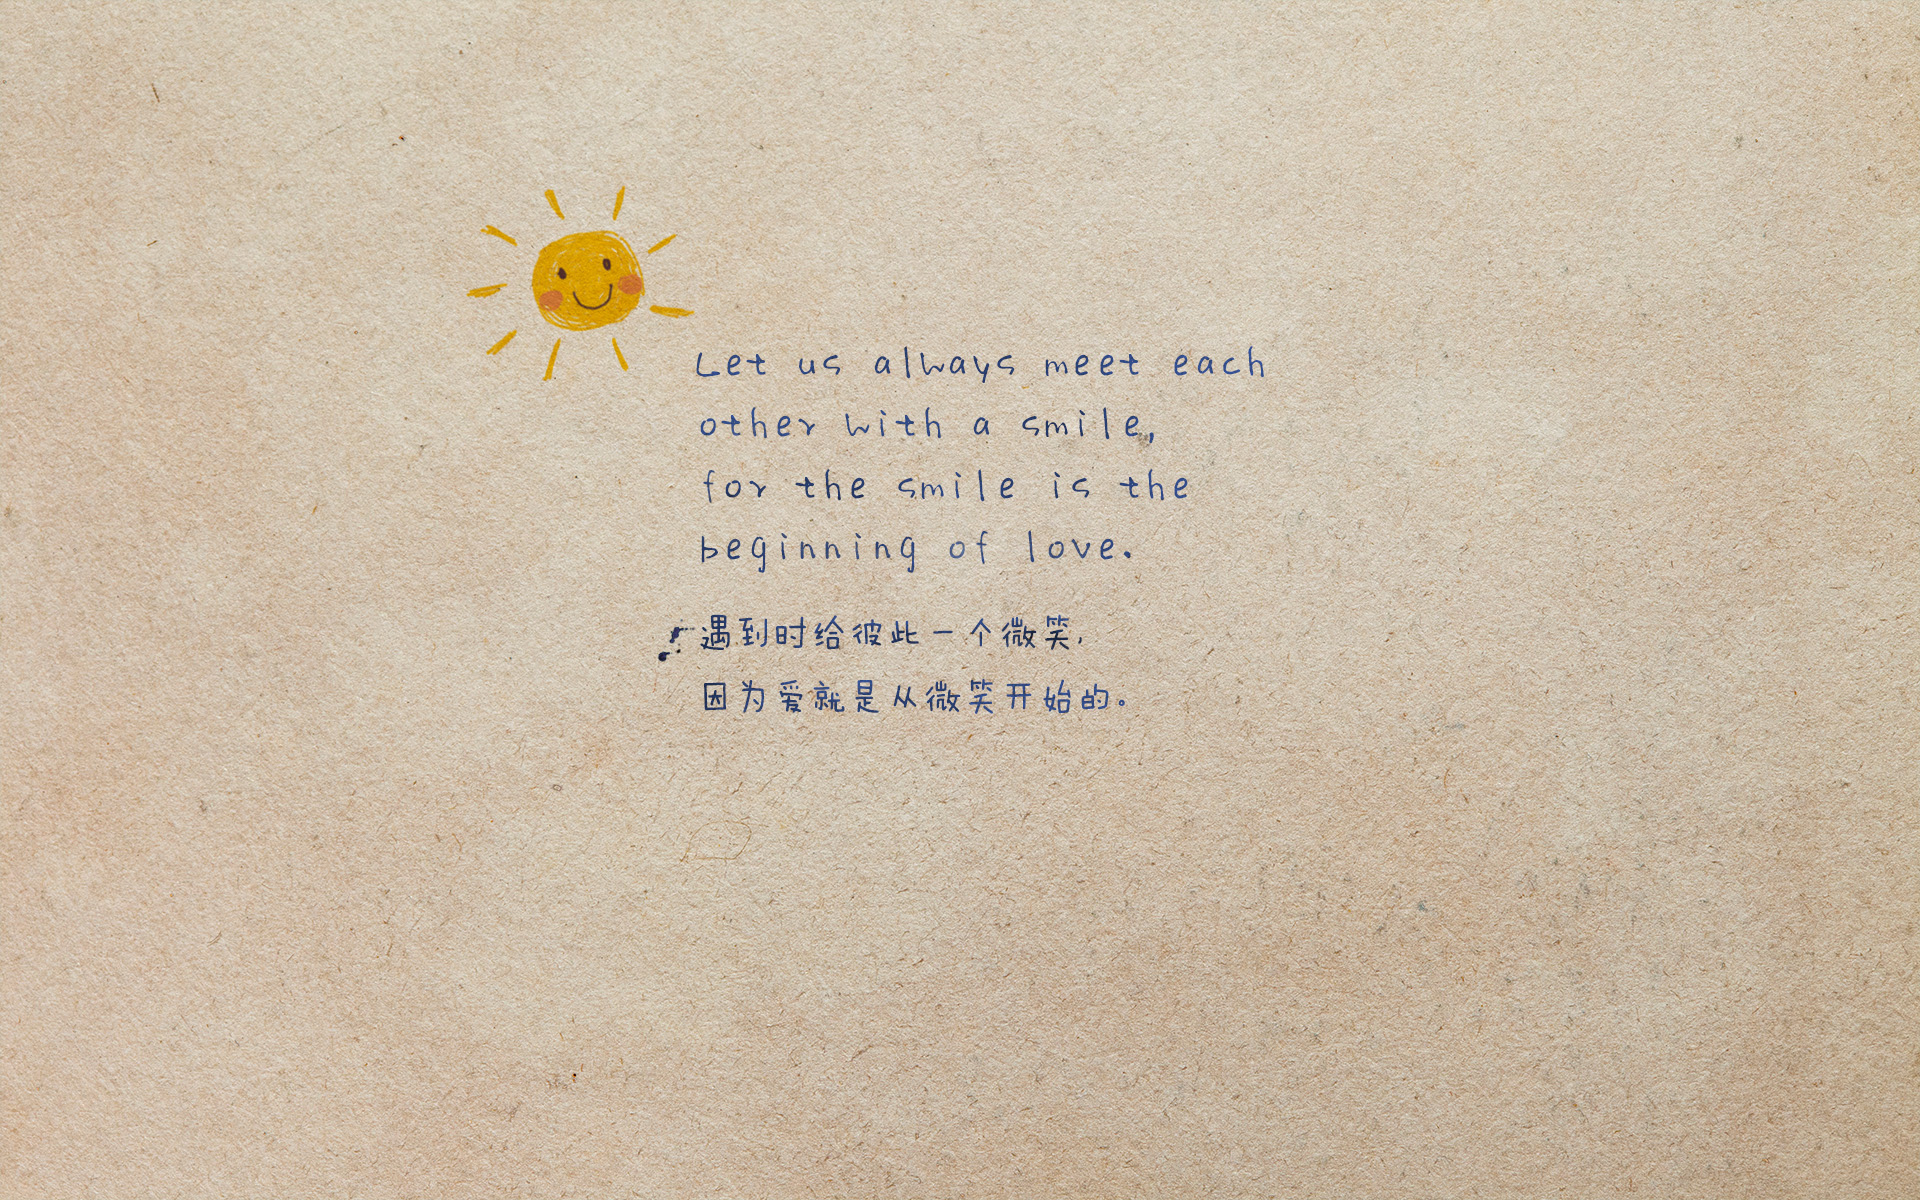 Let us always meet each
other with a smile,
for the smile is the
beginning of love.
遇到时给彼此一个微笑,
因为爱就是从微笑开始的。